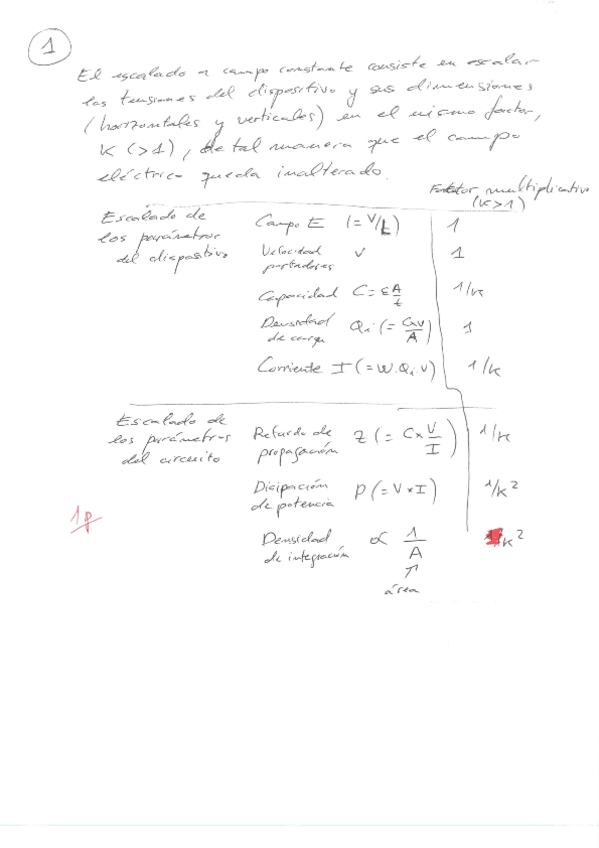 1
El escalado a campo constante consiste en escalar
las tensiones del dispositivo y sus dimensiones
(horizontales y verticales) en el mismo factor,
K (>1), de tal manera que el campo
eléctrico queda inalterado.
Factor multiplicativo
(K>1)
Escalado de
los parámetros
del dispositivo
Campo E (= V/L) 1
Velocidad
portadores v 1
Capacidad C = ε A/t 1/K
Densidad
de carga Qi (= C×V/A) 1
Corriente I (= W.Qi.v) 1/K
Escalado de
los parámetros
del circuito
Retardo de
propagación Z (= C × V/I) 1/K
Disipación
de potencia P (= V × I) 1/K²
Densidad
de integración ∝ 1/A K²
↑
área
1p